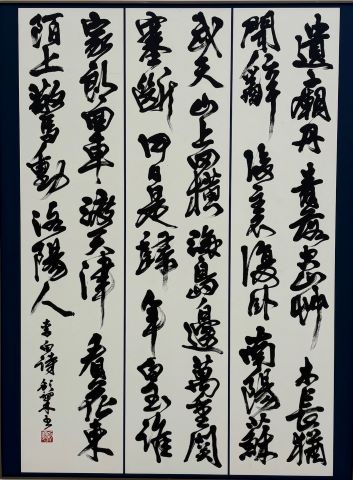 遺廟丹青落空山草木長猶
聞辭後主不復臥南陽蘇
武天山上田橫海島邊萬重關
塞斷何日是歸年白玉誰
家郎回車渡天津看花東
陌上驚動洛陽人
李白詩